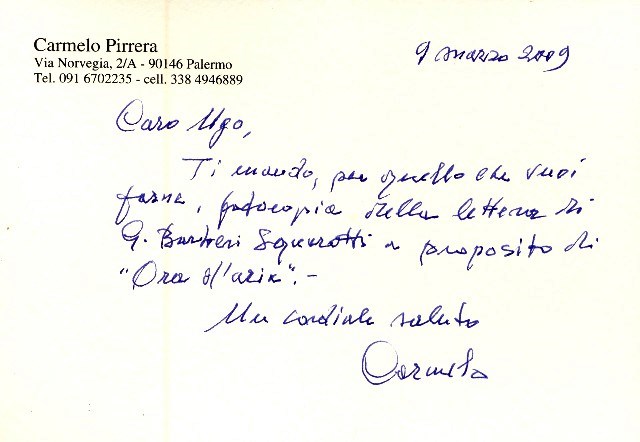 Carmelo Pirrera
Via Norvegia, 2/A - 90146 Palermo
Tel. 091 6702235 - cell. 338 4946889
9 marzo 2009
Caro Ugo,
Ti mando, per quello che vuoi
farne, fotocopia della lettera di
G. Barberi Squarotti a proposito di
"Ora d'aria". -
Un cordiale saluto
Carmelo